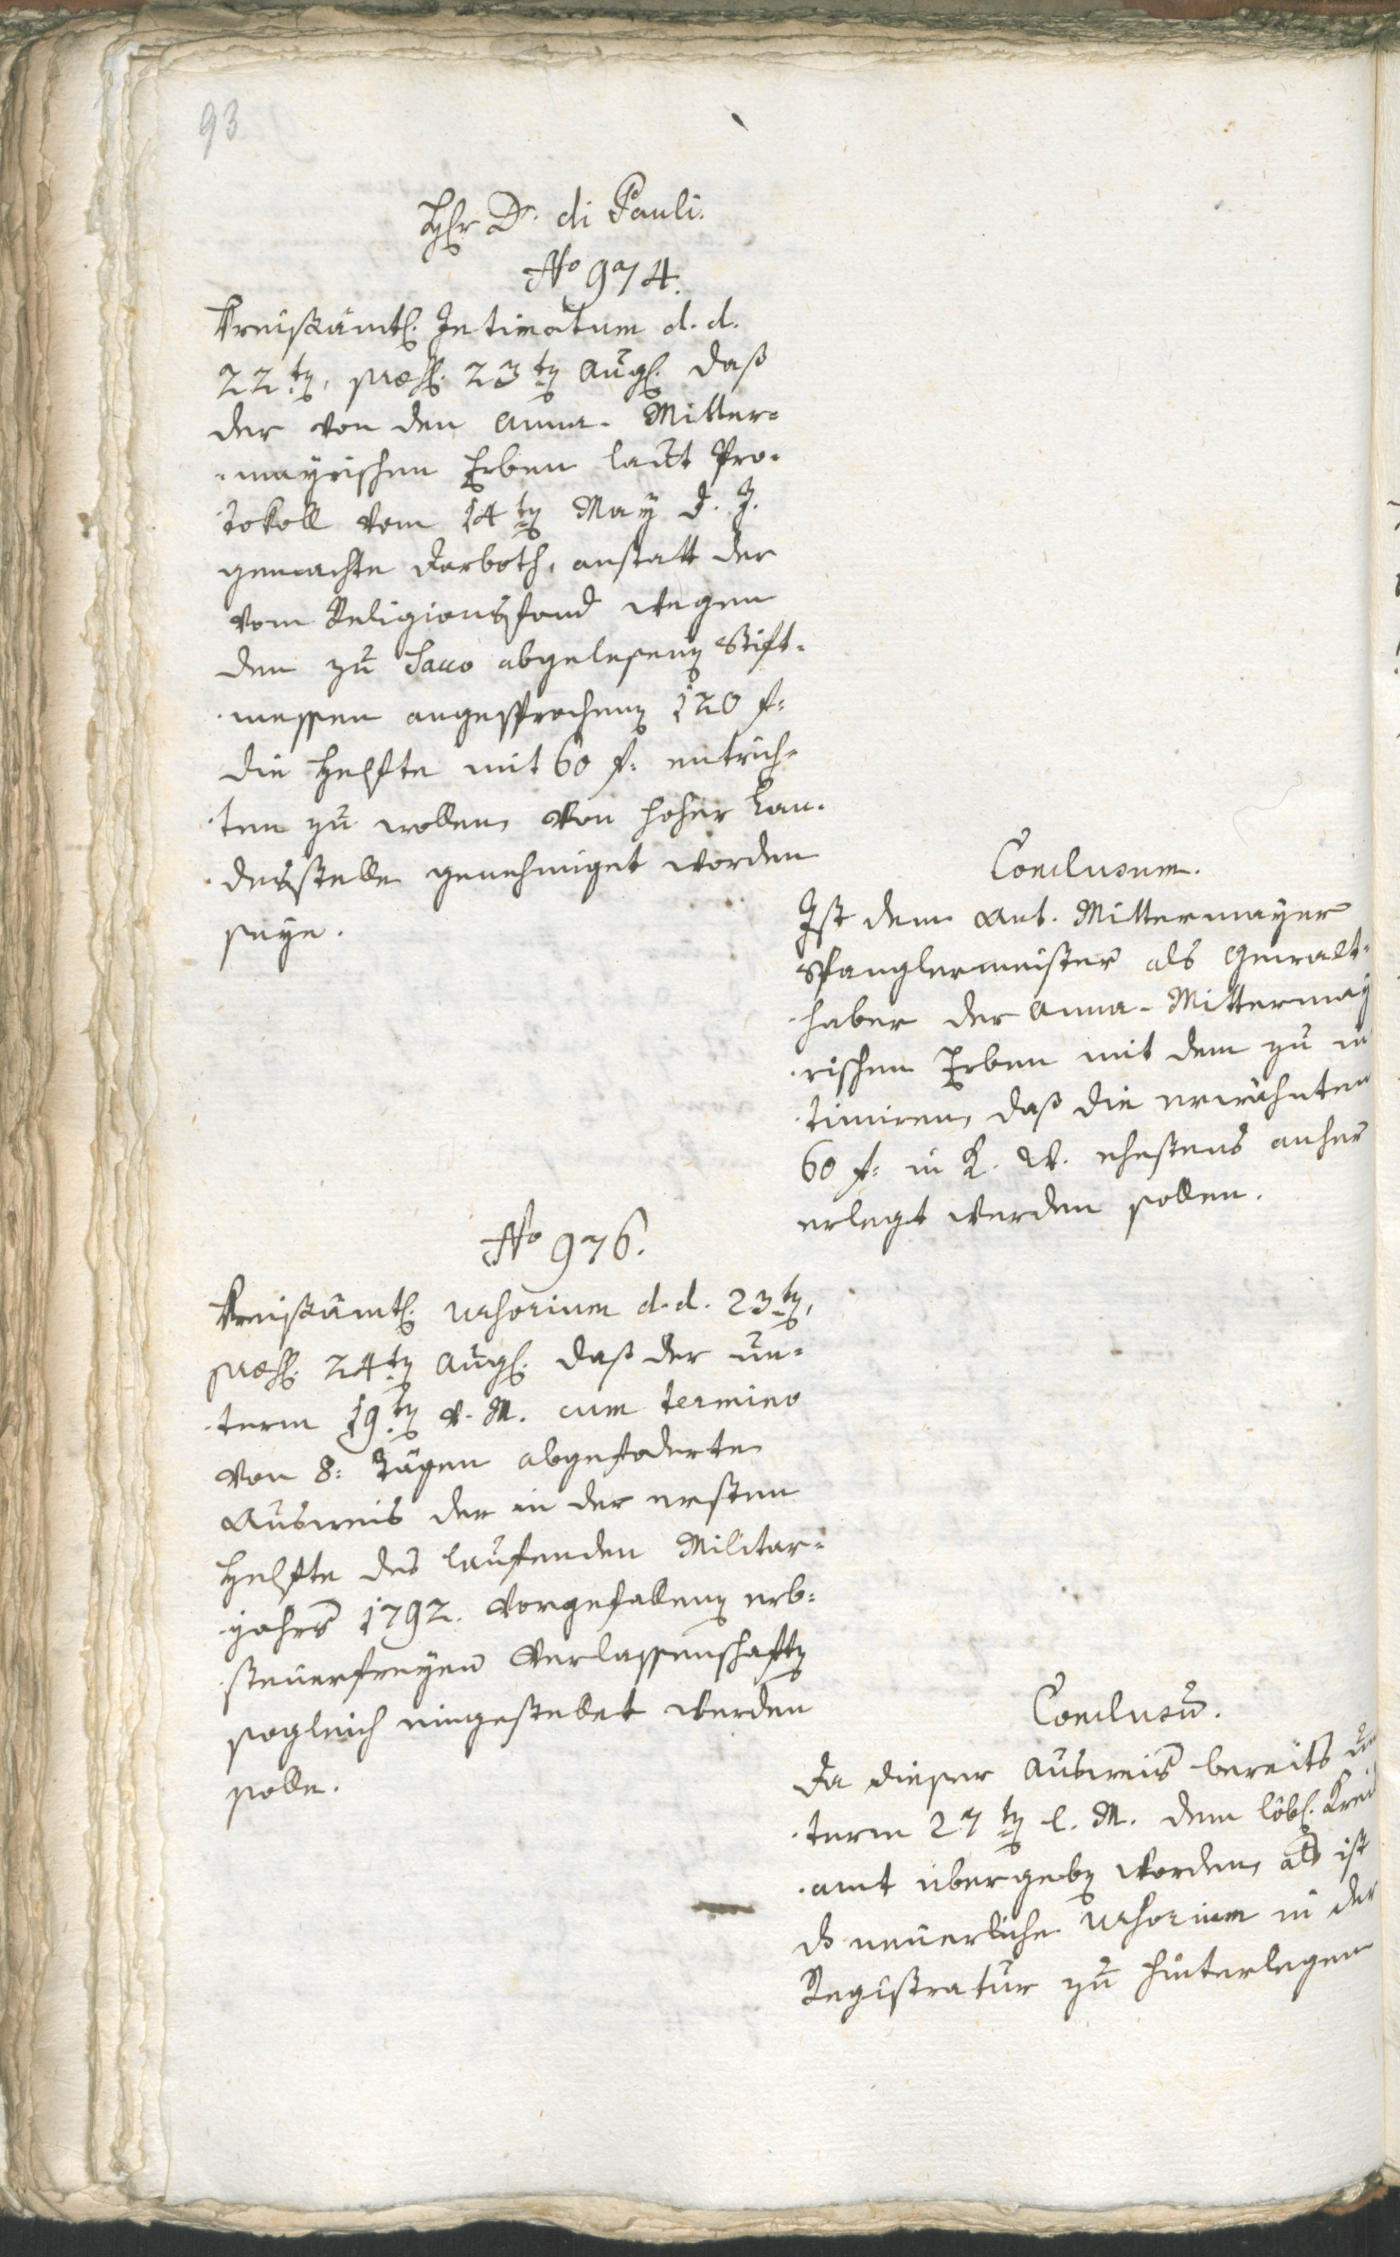 93
Hr Dr. di Pauli.
No 974.
Kreisämtl. Intimatum d. d.
22ten, præs. 23ten Augl. daß
der von den Anna-Mitter-
mayrischen Erben laut Pro-
tokoll vom 14ten May d. J.
gemachte Anboth, anstatt der
vom Religionsfond wegen
den zu Sacco abgelesenen Stift-
messen angesprochenen 120 f:
die Helfte mit 60 f: entrich-
ten zu wollen, von hoher Lan-
desstelle genehmiget worden
seye.
Conclusum.
Ist dem Ant. Mittermayer
Spanglermeister als Gewalt-
haber der Anna-Mittermay
rischen Erben mit dem zu in
timiren, daß die erwähnten
60 f: in K. W. ehestens anher
erlegt werden sollen.
No 976.
Kreisämtl. Urhorium d. d. 23ten,
præs. 24ten Augl. daß der un-
term 19ten v. M. cum termino
von 8: Tägen abgefoderte
Ausweis der in der ersten
Helfte des laufenden Militar-
jahrs 1792. vorgefallenen erb-
steuerfreyen Verlassenschaften
sogleich eingestellet werden
solle.
Conclusum.
Da dieser Ausweis bereits un
term 27ten l. M. dem löbl. Kreis
amt übergeben worden, als ist
das neuerliche Urhorium in der
Registratur zu hinterlegen